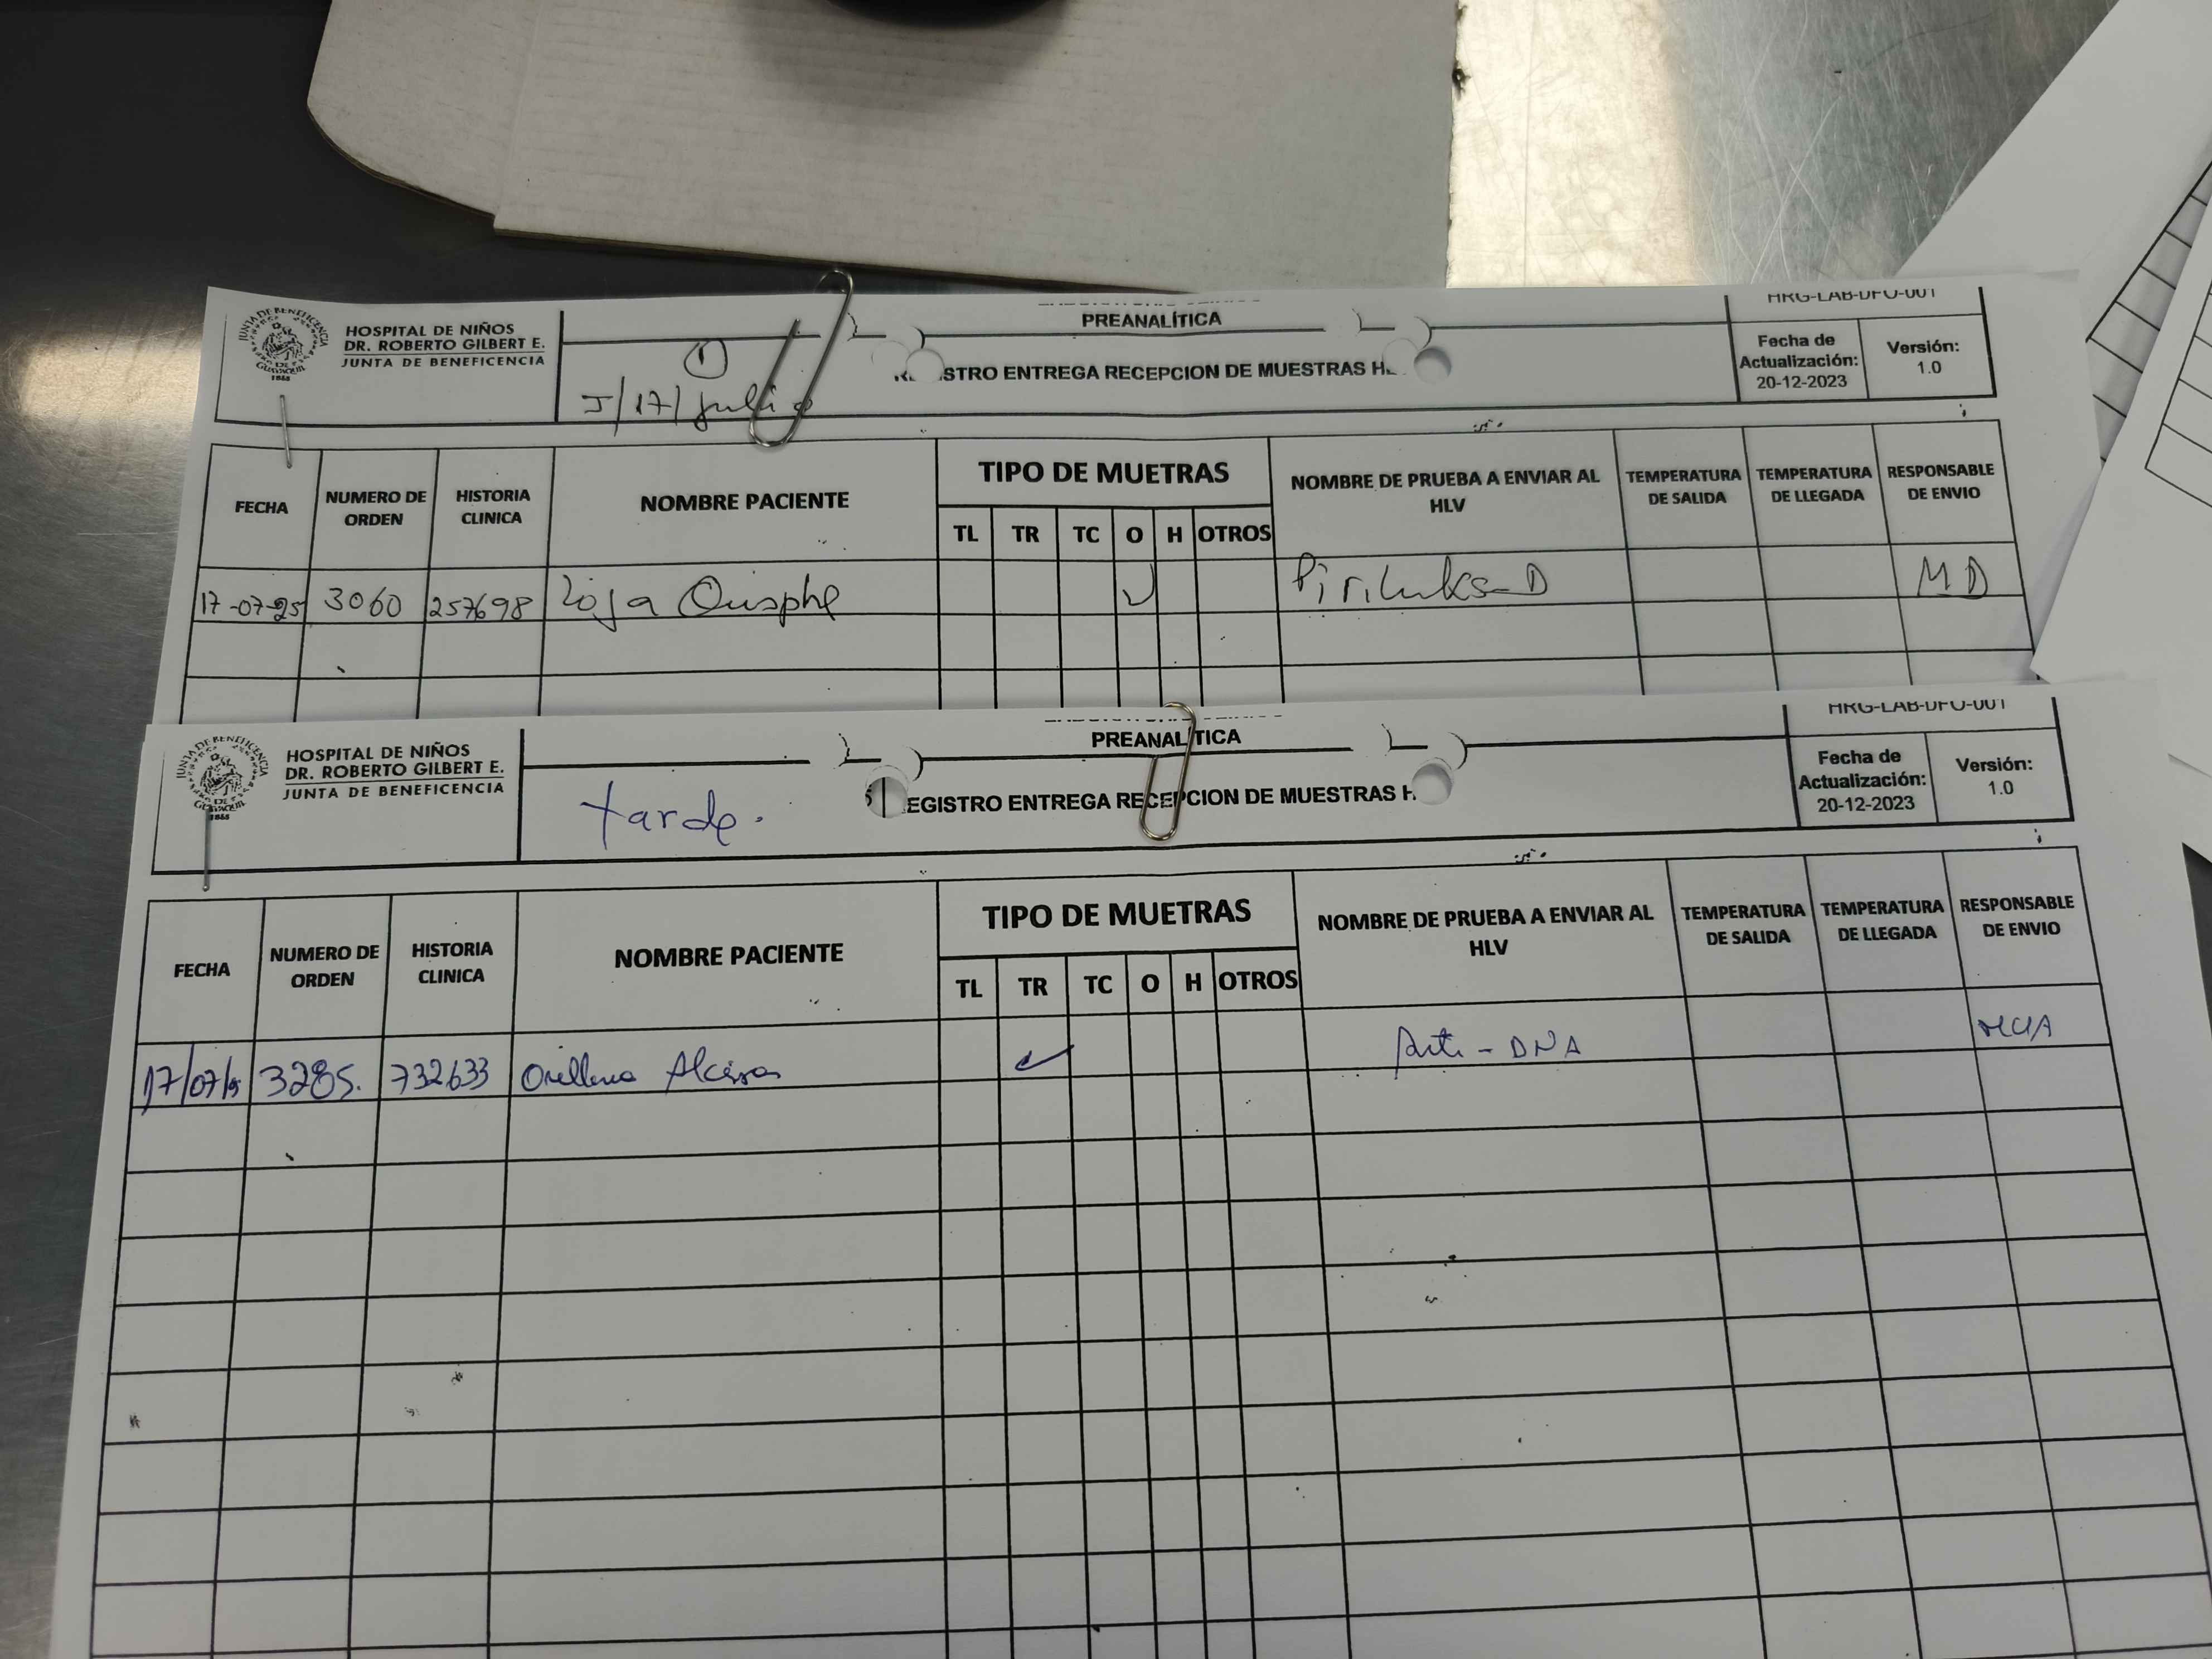 JUNTA DE BENEFICENCIA DE GUAYAQUIL
1888
HOSPITAL DE NIÑOS
DR. ROBERTO GILBERT E.
JUNTA DE BENEFICENCIA
①
J/17/julio
PREANALÍTICA
STRO ENTREGA RECEPCION DE MUESTRAS
HRG-LAB-DFO-001
Fecha de
Actualización:
20-12-2023
Versión:
1.0
FECHA
NUMERO DE
ORDEN
HISTORIA
CLINICA
NOMBRE PACIENTE
TIPO DE MUETRAS
TL TR TC O H OTROS
NOMBRE DE PRUEBA A ENVIAR AL
HLV
TEMPERATURA
DE SALIDA
TEMPERATURA
DE LLEGADA
RESPONSABLE
DE ENVIO
17-07-25 3060 257698 Loja Quisphe ✓ MD
JUNTA DE BENEFICENCIA DE GUAYAQUIL
1888
HOSPITAL DE NIÑOS
DR. ROBERTO GILBERT E.
JUNTA DE BENEFICENCIA
tarde.
PREANALÍTICA
EGISTRO ENTREGA RECEPCION DE MUESTRAS
HRG-LAB-DFO-001
Fecha de
Actualización:
20-12-2023
Versión:
1.0
FECHA
NUMERO DE
ORDEN
HISTORIA
CLINICA
NOMBRE PACIENTE
TIPO DE MUETRAS
TL TR TC O H OTROS
NOMBRE DE PRUEBA A ENVIAR AL
HLV
TEMPERATURA
DE SALIDA
TEMPERATURA
DE LLEGADA
RESPONSABLE
DE ENVIO
17/07/25 3285. 732633 Orellana ✓ Anti-DNA